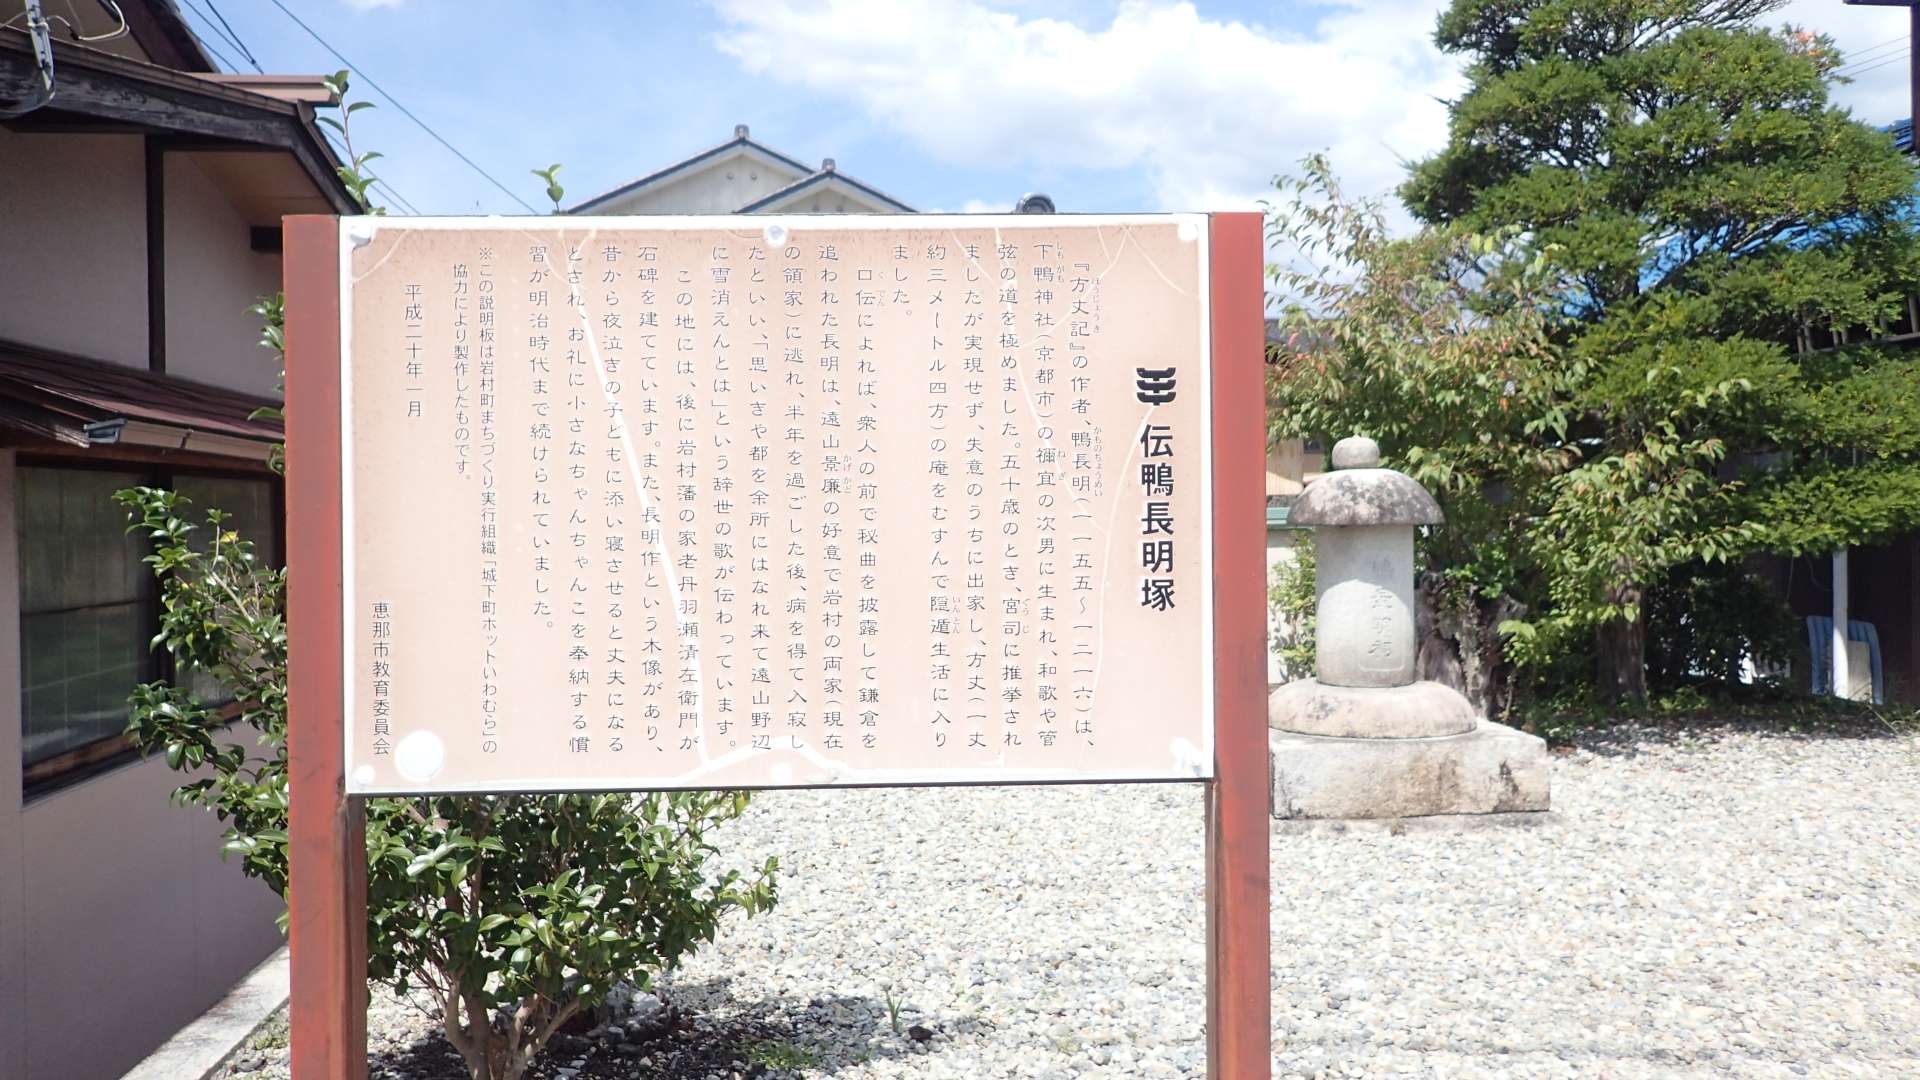 伝鴨長明塚
『方丈記』の作者、鴨長明(一一五五~一二一六)は、
下鴨神社(京都市)の禰宜の次男に生まれ、和歌や管
弦の道を極めました。五十歳のとき、宮司に推挙され
ましたが実現せず、失意のうちに出家し、方丈(一丈
約三メートル四方)の庵をむすんで隠遁生活に入り
ました。
口伝によれば、衆人の前で秘曲を披露して鎌倉を
追われた長明は、遠山景廉の好意で岩村の両家(現在
の領家)に逃れ、半年を過ごした後、病を得て入寂し
たといい、「思いきや都を余所にはなれ来て遠山野辺
に雪消えんとは」という辞世の歌が伝わっています。
この地には、後に岩村藩の家老丹羽瀬清左衛門が
石碑を建てています。また、長明作という木像があり、
昔から夜泣きの子どもに添い寝させると丈夫になる
とされ、お礼に小さなちゃんちゃんこを奉納する慣
習が明治時代まで続けられていました。
※この説明板は岩村町まちづくり実行組織「城下町ホットいわむら」の
協力により製作したものです。
平成二十年一月
恵那市教育委員会